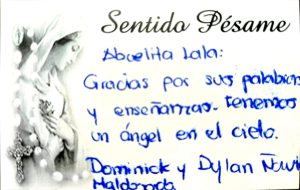 Sentido Pésame
Abuelita Lala:
Gracias por sus palabras
y enseñanzas. tenemos
un ángel en el cielo.
Dominick y Dylan
Maldonado